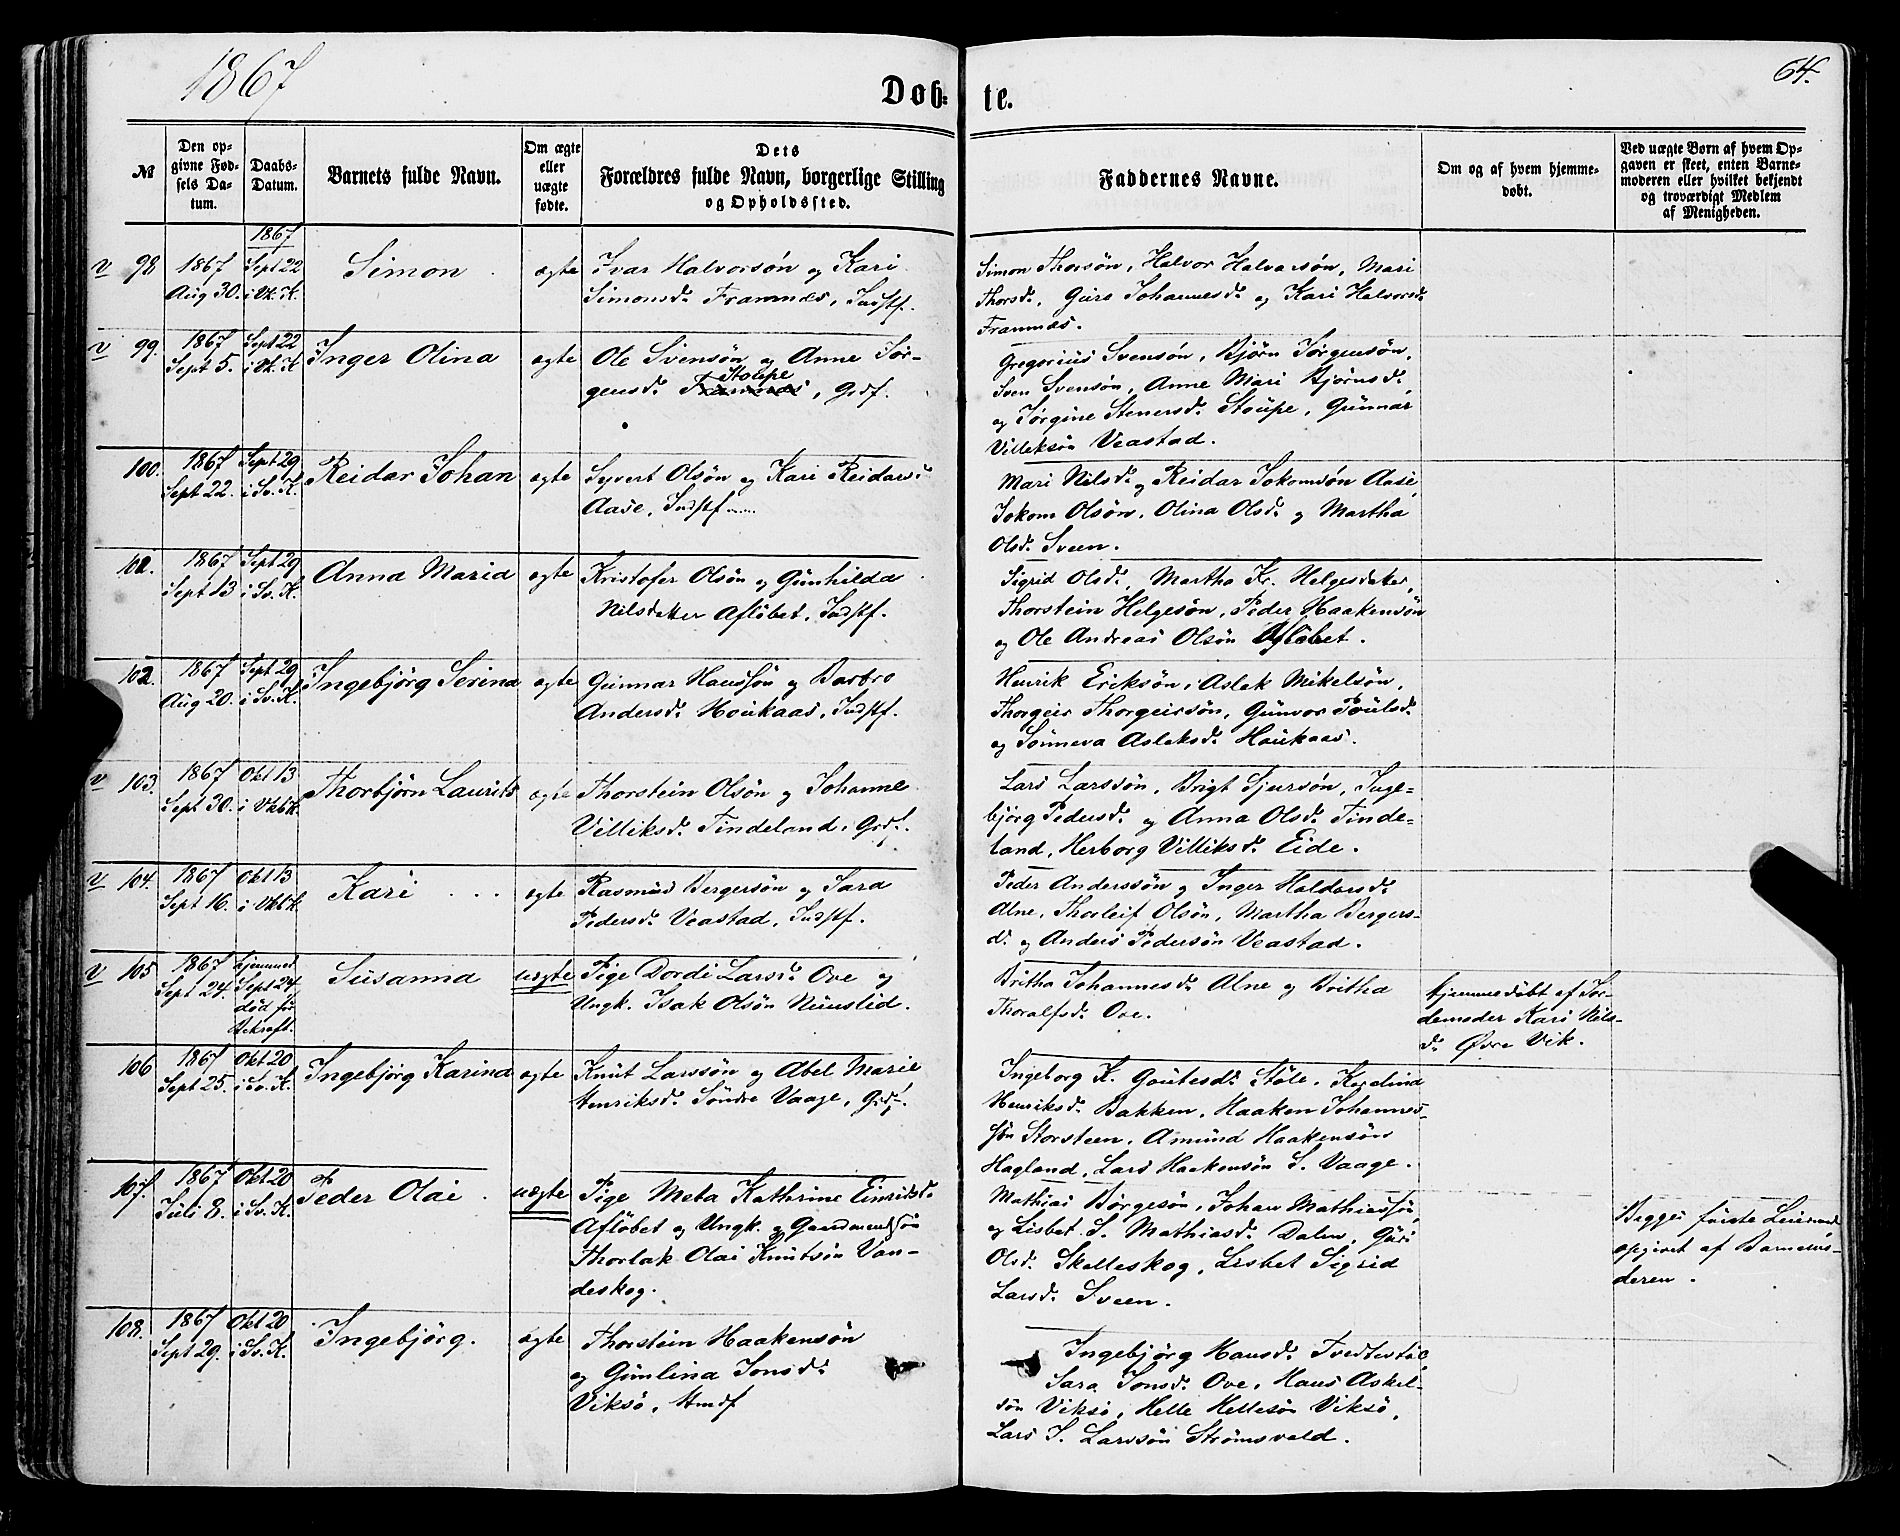 1867
Døb-
te.
64.
№
Den op-
givne Fød-
sels Da-
tum.
Daabs-
Datum.
Barnets fulde Navn.
Om ægte
eller
uægte
fødte.
Dets
Forældres fulde Navn, borgerlige Stilling
og Opholdssted.
Faddernes Navne.
Om og af hvem hjemme-
døbt.
Ved uægte Børn af hvem Op-
gaven er skeet, enten Barne-
moderen eller hvilket bekjendt
og troværdigt Medlem
af Menigheden.
1867
v 98
1867
Aug 30.
Sept 22
i Vk. K.
Simon
ægte
Ivar Halvorsøn og Kari
Simonsd. Framnæs, Indstf.
Simon Thorsøn, Halvor Halvorsøn, Mari
Thorsd., Guro Johannesd. og Kari Halvorsd.
Framnæs.
v 99.
1867
Sept 5.
Sept 22
i Vk. K
Inger Olina
ægte
Ole Svensøn og Anne Jør-
Stoupe
gensd. Framnæs, Grdf.
Gregorius Svensøn, Bjørn Jørgensøn,
Sven Svensøn, Anne Mari Bjørnsd.
og Jørgine Stenersd. Stoupe, Gunnar
Villeksøn Veastad.
100.
1867
Sept 22.
Sept 29
i Sv. K.
Reidar Johan
ægte
Syvert Olsøn og Kari Reidarsd.
Aase, Indstf.
Mari Nilsd. og Reidar Jokomsøn Aase,
Jokom Olsøn, Olina Olsd. og Martha
Olsd. Sveen.
101.
1867
Sept 13
Sept 29
i Sv. K.
Anna Maria
ægte
Kristofer Olsøn og Gunhilda
Nilsdatter Afløbet, Indstf.
Sigrid Olsd., Martha Kr. Helgesdatter,
Thorstein Helgesøn, Peder Haakensøn
og Ole Andreas Olsøn Afløbet.
102.
1867
Aug 20.
Sept 29
i Sv. K.
Ingebjørg Serina
ægte
Gunnar Hanssøn og Barbro
Andersd. Houkaas, Indstf.
Henrik Eriksøn, Aslak Mikelsøn,
Thorgeir Thorgeirsøn, Gunvor Poulsd.
og Sønneva Aslaksd. Houkaas.
v 103.
1867
Sept 30.
Okt 13
i Vkbk.
Thorbjørn Laurits
ægte
Thorstein Olsøn og Johanne
Villiksd. Tindeland, Grdf.
Lars Larssøn, Brigt Sjursøn, Inge-
bjørg Pedersd. og Anna Olsd. Tinde-
land, Herborg Villiksd. Eide.
v 104.
1867
Sept 16.
Okt 13
i Vkbk.
Kari
ægte
Rasmus Bergersøn og Sara
Pedersd. Veastad, Indstf.
Peder Anderssøn og Inger Haldorsd.
Alne, Thorleif Olsøn, Martha Bergers-
d. og Anders Pedersøn Veastad.
v 105
1867
Sept 24.
hjemmed
Sept 24.
død før
bekræft.
Susanna
uægte
Pige Dordi Larsd. Ove og
Ungk. Isak Olsøn Nuustid.
Britha Johannesd. Alne og Britha
Thoralfsd. Ove.
hjemmedøbt af Jor-
demoder Kari Nils-
d. Øvre Vik.
106
1867
Sept 25.
Okt 20
i Sv. K.
Ingebjørg Karina
ægte
Knut Larssøn og Abel Marie
Henriksd. Søndre Vaage, Grdf.
Ingeborg K. Goutesd. Støle, Karolina
Henriksd. Bakken, Haaken Johannes-
søn Storsteen, Amund Haakensøn
Hagland, Lars Haakensøn S. Vaage.
107.
1867
Juli 8.
Okt 20
i Sv. K.
Peder Olai
uægte
Pige Meta Kathrine Einridsd.
Afløbet og Ungk. og Gaardmandssøn
Thorlak Olai Knutsøn Van-
deskog.
Mathias Børgesøn, Johan Mathiassøn,
og Lisbet S. Mathiasd. Dalen, Guri
Olsd. Skelleskog, Lisbet Sigrid
Larsd. Sveen.
Begges første Leiermaal
opgivet af Barnemo-
deren.
108.
1867
Sept 29.
Okt 20
i Sv. K.
Ingebjørg.
ægte
Thorstein Haakensøn
og Gunlina Jonsd.
Viksø, Hmdf
Ingebjørg Hansd. Tvedtestøl
Sara Jonsd. Ove, Hans Askel-
søn Viksø, Helle Hellesøn Viksø,
Lars S. Larssøn Strømsvold.